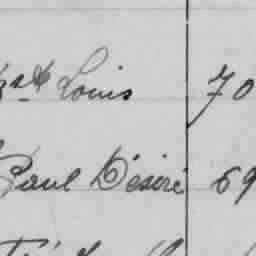 Louis 70
Paul Désiré 69